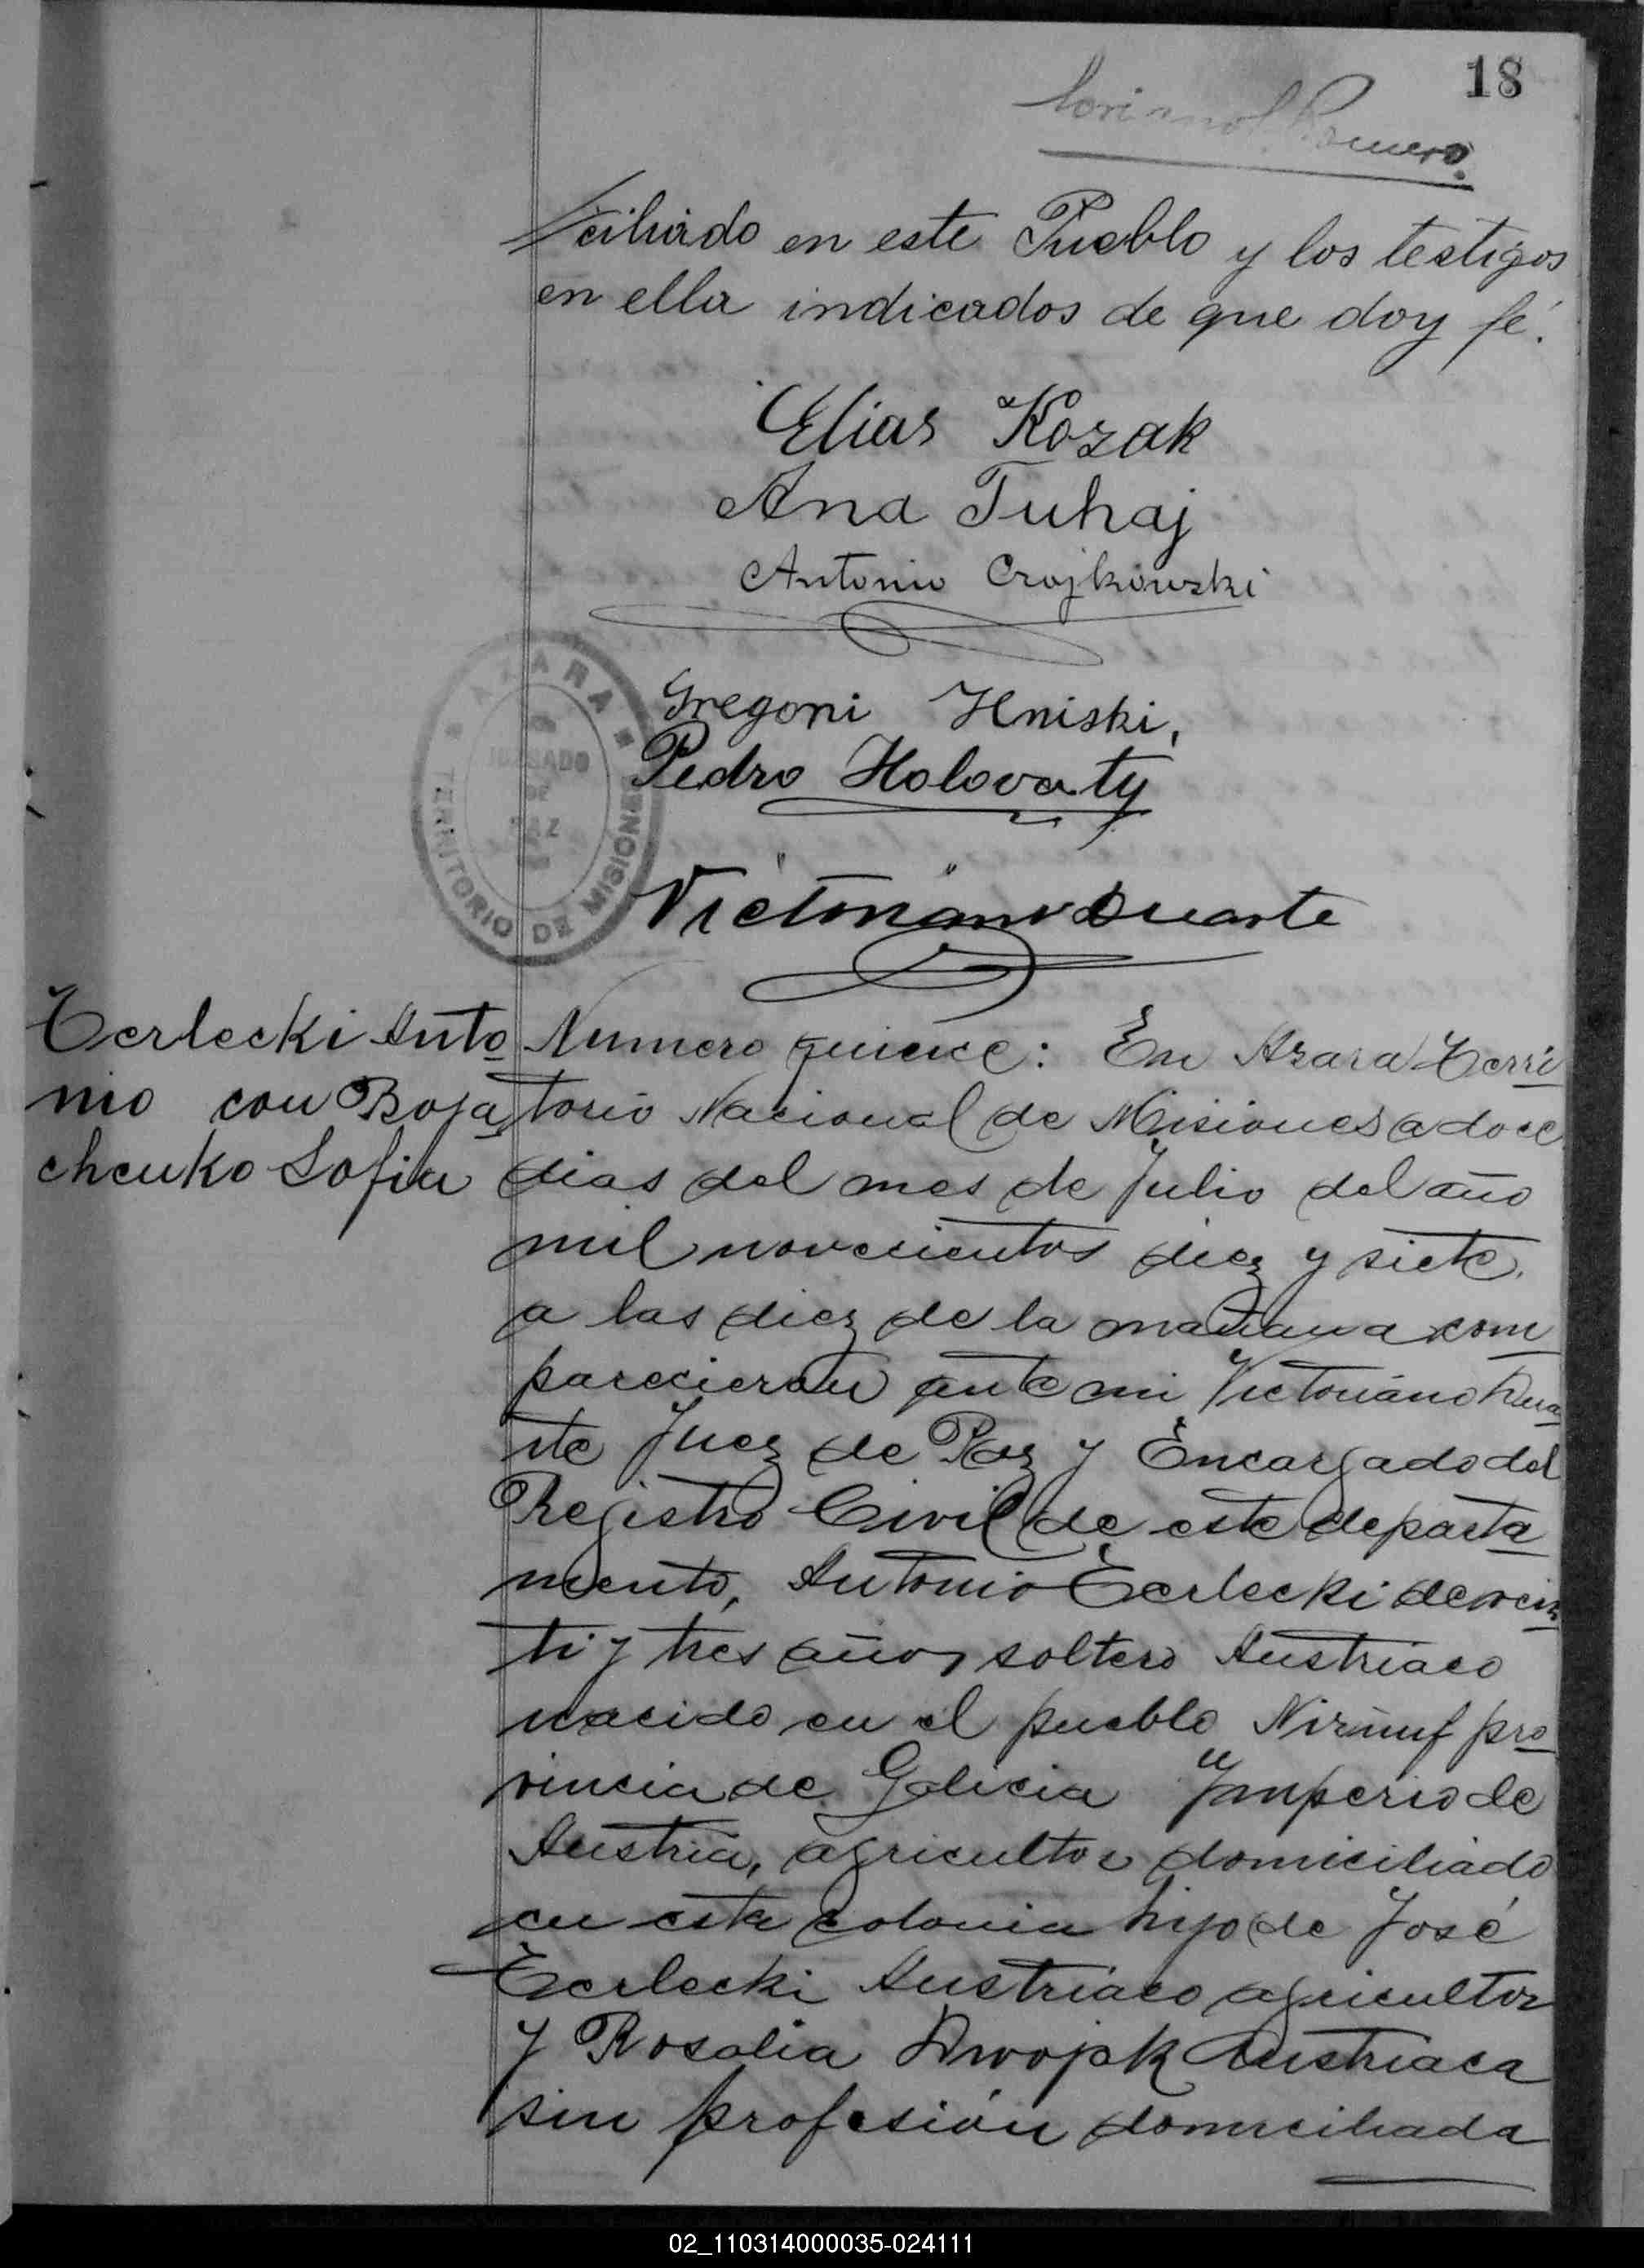 18
ciliado en este Pueblo y los testigos
en ella indicados de que doy fé.
Elias Kozak
Ana Tuhaj
Antonio Crojkowski
Gregori Hniski,
Pedro Holovaty
AZARA
JUZGADO
DE
PAZ
TERRITORIO DE MISIONES
Victoriano Duarte
Terlecki Anto
nio con Boja
chenko Sofia
Numero quince: En Azara Terri
torio Nacional de Misiones a doce
dias del mes de Julio del año
mil novecientos diez y siete.
a las diez de la mañana com
parecieron ante mi Victoriano Dua
rte Juez de Paz y Encargado del
Registro Civil de este departa
mento, Antonio Terlecki de vein
ti y tres años soltero Austriaco
nacido en el pueblo pro
vincia de Galicia Imperio de
Austria, agricultor domiciliado
en esta colonia hijo de José
Terlecki Austriaco agricultor
y Rosalia Austriaca
sin profesión domiciliada
02_110314000035-024111